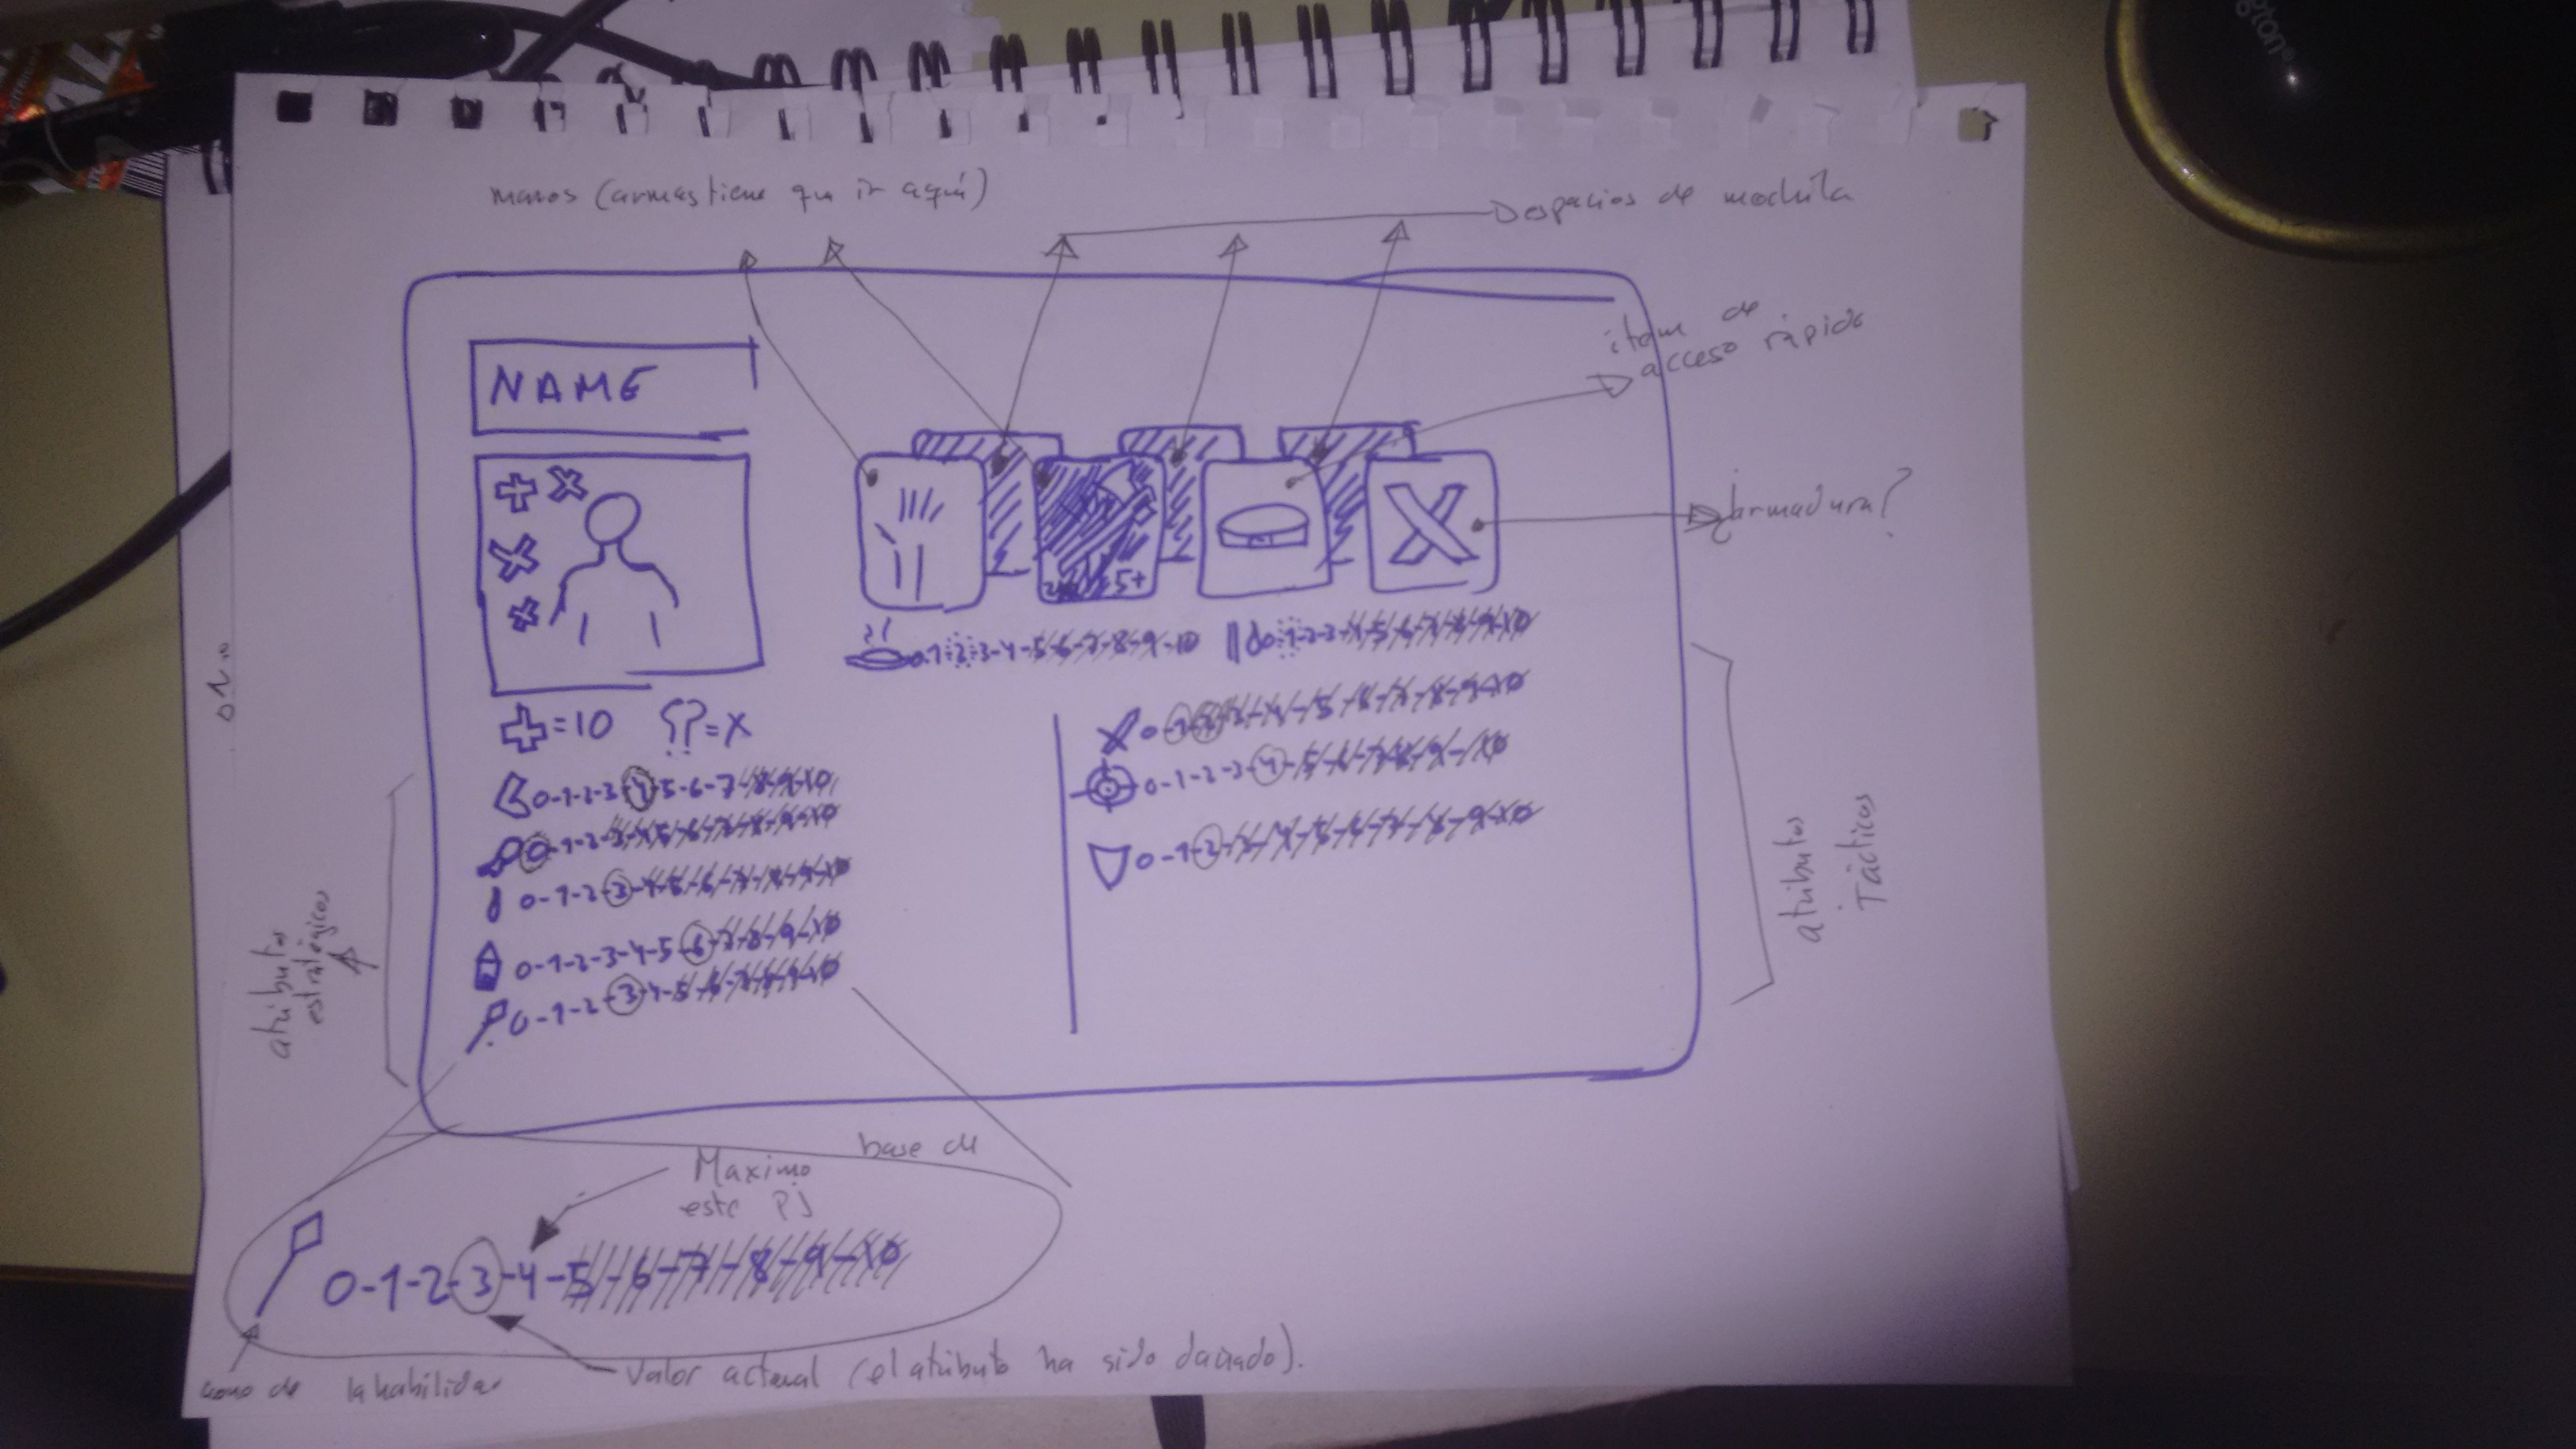 gton®
AL
manos (armas tiene que ir aquí)
espacios de mochila
item de
acceso rápido
NAME
2 5+
¿armadura?
0-1-2-3-4-5-6-7-8-9-10
0-1-2-3-4-5-6-7-8-9-10
=10 ??=x
0-1-2-3-4-5-6-7-8-9-10
0-1-2-3-4-5-6-7-8-9-10
0-1-2-3-4-5-6-7-8-9-10
0-1-2-3-4-5-6-7-8-9-10
0-1-2-3-4-5-6-7-8-9-10
0-1-2-3-4-5-6-7-8-9-10
0-1-2-3-4-5-6-7-8-9-10
0-1-2-3-4-5-6-7-8-9-10
atributos
estratégicos
atributos
Tácticos
Maximo base de
este PJ
0-1-2-3-4-5-6-7-8-9-10
icono de la habilidad
valor actual (el atributo ha sido dañado).